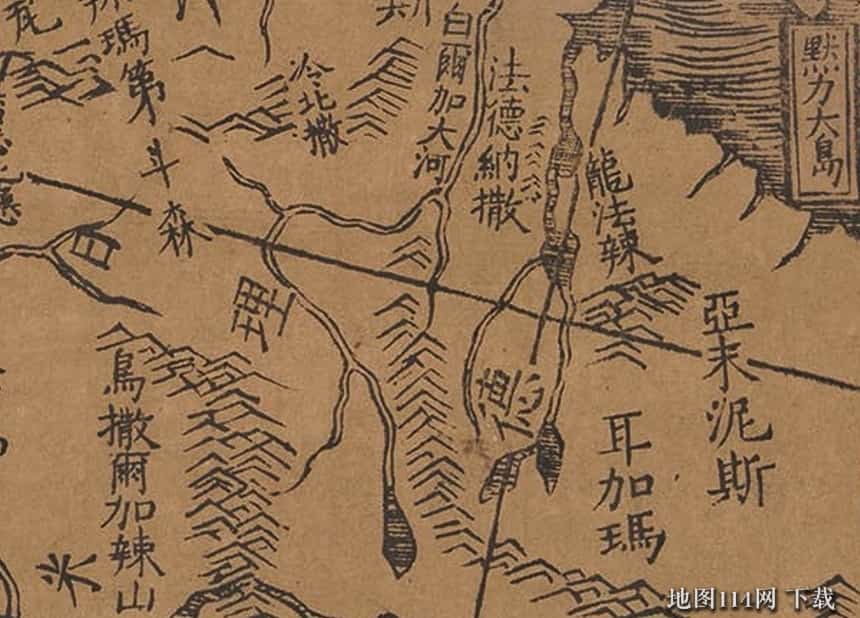 默力大島
龍法辣
亞末泥斯
耳加瑪
法德納撒
德
白爾加大河
冷北撒
理
瑪第
斗森
烏撒爾加辣山
地图114网 下载